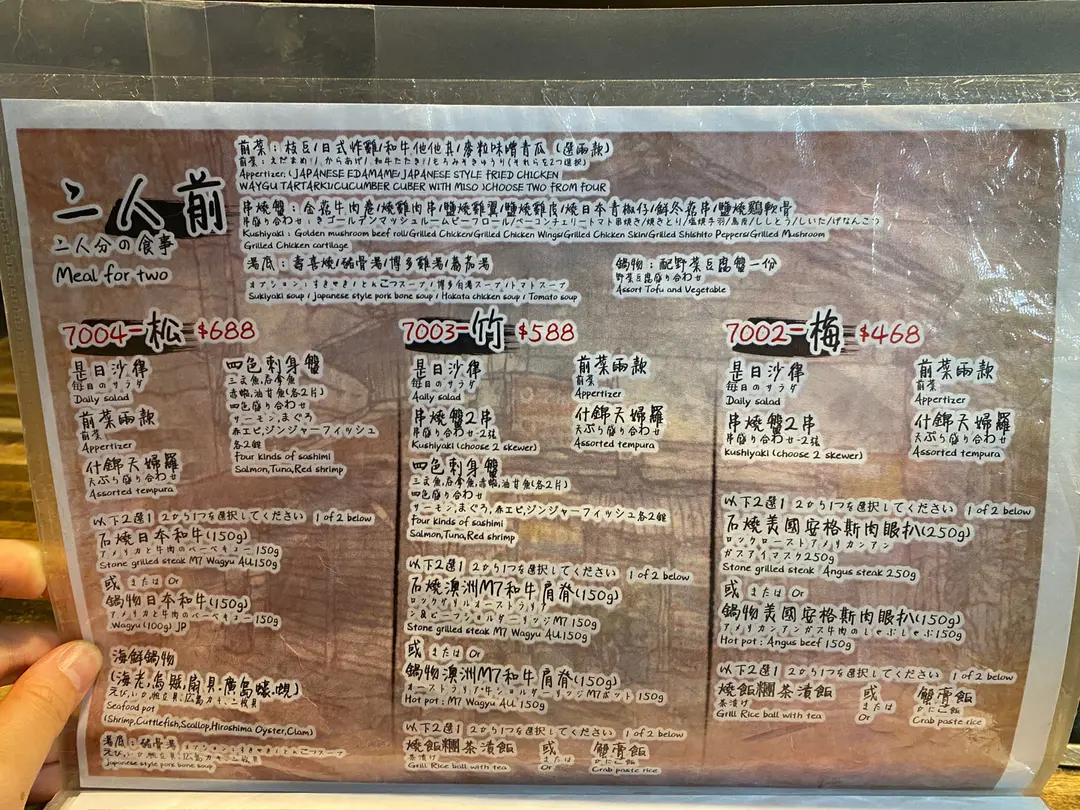 二人前
二人分の食事
Meal for two
前菜：枝豆/日式炸雞/和牛他他真/麥粒味噌青瓜（選兩款）
前菜：えだまめ/からあげ/和牛たたき/もろみきゅうり(それらを2つ選択)
Appertizer:(JAPANESE EDAMAME/JAPANESE STYLE FRIED CHICKEN
WAYGU TARTARKI/CUCUMBER CUBER WITH MISO )CHOOSE TWO FROM FOUR
串燒盤：金菇牛肉卷/燒雞肉串/鹽燒雞翼/鹽燒雞皮/燒日本青椒仔/鮮冬菇串/鹽燒鷄軟骨
Kushiyaki : Golden mushroom beef roll/Grilled Chicken/Grilled Chicken Wings/Grilled Chicken Skin/Grilled Shishito Peppers/Grilled Mushroom
Grilled Chicken cartilage
湯底：壽喜燒/豬骨湯/博多雞湯/蕃茄湯
オプション：すきやき/とんこつスープ/博多白湯スープ/トマトスープ
Sukiyaki soup / japanese style pork bone soup / Hakata chicken soup / Tomato soup
鍋物：配野菜豆腐盤一份
野菜豆腐盛り合わせ
Assort Tofu and Vegetable
7004-松 $688
是日沙律
毎日のサラダ
Daily salad
前菜兩款
前菜
Appertizer
什錦天婦羅
天ぷら盛り合わせ
Assorted tempura
四色刺身盤
三文魚,吞拿魚
赤蝦,油甘魚(各2片)
四色盛り合わせ
サーモン,まぐろ
赤エビ,ジンジャーフィッシュ
各2個
four kinds of sashimi
Salmon,Tuna,Red shrimp
以下2選1 2から1つを選択してください 1 of 2 below
石燒日本和牛(150g)
アメリカと牛肉のバーベキュー150g
Stone grilled steak M7 Wagyu AU150g
或 または Or
鍋物日本和牛(150g)
アメリカと牛肉のバーベキュー150g
Wagyu (100g) JP
海鮮鍋物
(海老,烏賊,扇貝,廣島蠔,蜆)
えび,いか,帆立貝,広島カキ,二枚貝
Seafood pot
(Shrimp,Cuttlefish,Scallop,Hiroshima Oyster,Clam)
湯底：豬骨湯 オプション：すきやき/とんこつスープ
えび,いか,帆立貝,広島カキ,二枚貝
Japanese style pork bone soup
7003-竹 $588
是日沙律
毎日のサラダ
Aaily salad
串燒盤2串
串盛り合わせ-2張
Kushiyaki (choose 2 skewer)
前菜兩款
前菜
Appertizer
什錦天婦羅
天ぷら盛り合わせ
Assorted tempura
四色刺身盤
三文魚,吞拿魚,赤蝦,油甘魚(各2片)
四色盛り合わせ
サーモン,まぐろ,赤エビ,ジンジャーフィッシュ各2個
four kinds of sashimi
Salmon,Tuna,Red shrimp
以下2選1 2から1つを選択してください 1 of 2 below
石燒澳洲M7和牛肩脊(150g)
ロックグリルオーストラリア
ン&ビーフショルダーリッジM7 150g
Stone grilled steak M7 Wagyu AU150g
或 または Or
鍋物澳洲M7和牛肩脊(150g)
オーストラリア牛ショルダーリッジM7ポット 150g
Hot pot : M7 Wagyu AU 150g
以下2選1 2から1つを選択してください 1 of 2 below
燒飯糰茶漬飯
茶漬け
Grill Rice ball with tea
或
または
Or
蟹膏飯
かにこ飯
Crab paste rice
7002-梅 $468
是日沙律
毎日のサラダ
Daily salad
串燒盤2串
串盛り合わせ-2張
Kushiyaki (choose 2 skewer)
前菜兩款
前菜
Appertizer
什錦天婦羅
天ぷら盛り合わせ
Assorted tempura
以下2選1 2から1つを選択してください 1 of 2 below
石燒美國安格斯肉眼扒(250g)
ロックローストアメリカンアン
ガスアイマスク250g
Stone grilled steak Angus steak 250g
或 または Or
鍋物美國安格斯肉眼扒(150g)
アメリカンアンガス牛肉のしゃぶしゃぶ150g
Hot pot : Angus beef 150g
以下2選1 2から1つを選択してください 1 of 2 below
燒飯糰茶漬飯
茶漬け
Grill Rice ball with tea
或
または
Or
蟹膏飯
かにこ飯
Crab paste rice